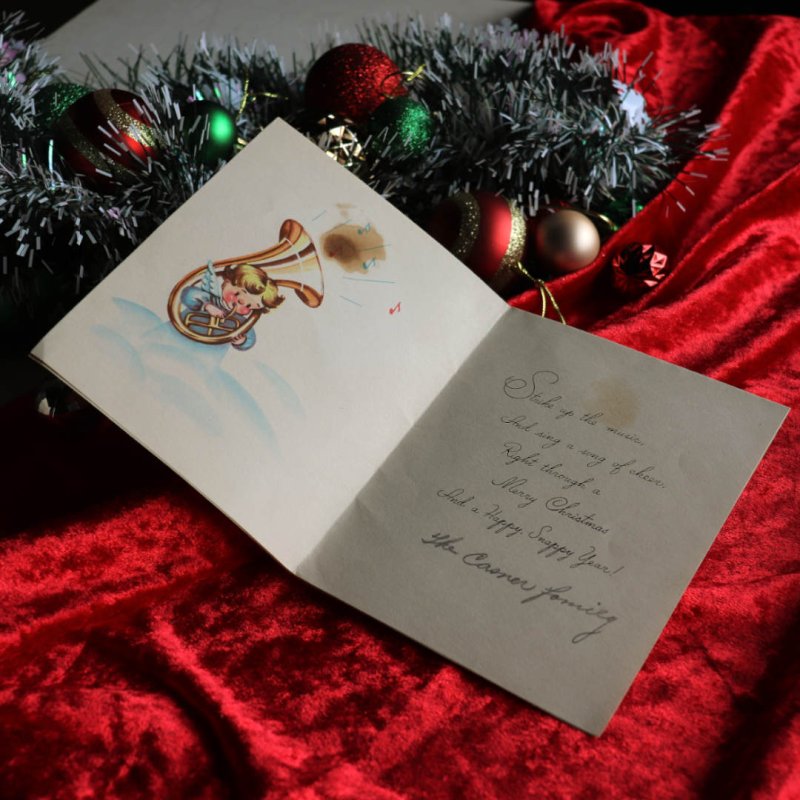 Strike up the music,
And sing a song of cheer,
Right through a
Merry Christmas
And a Happy, Snappy Year!
the Casner family